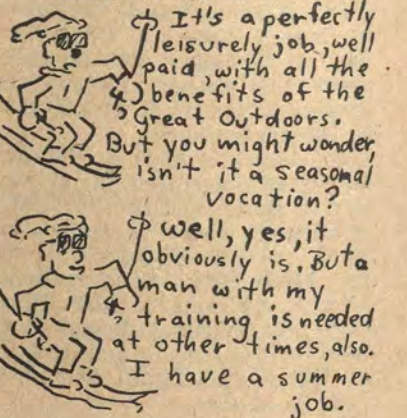 It's a perfectly
leisurely job, well
paid, with all the
benefits of the
Great Outdoors.
But you might wonder,
isn't it a seasonal
vocation?
well, yes, it
obviously is. But a
man with my
training is needed
at other times, also.
I have a summer
job.